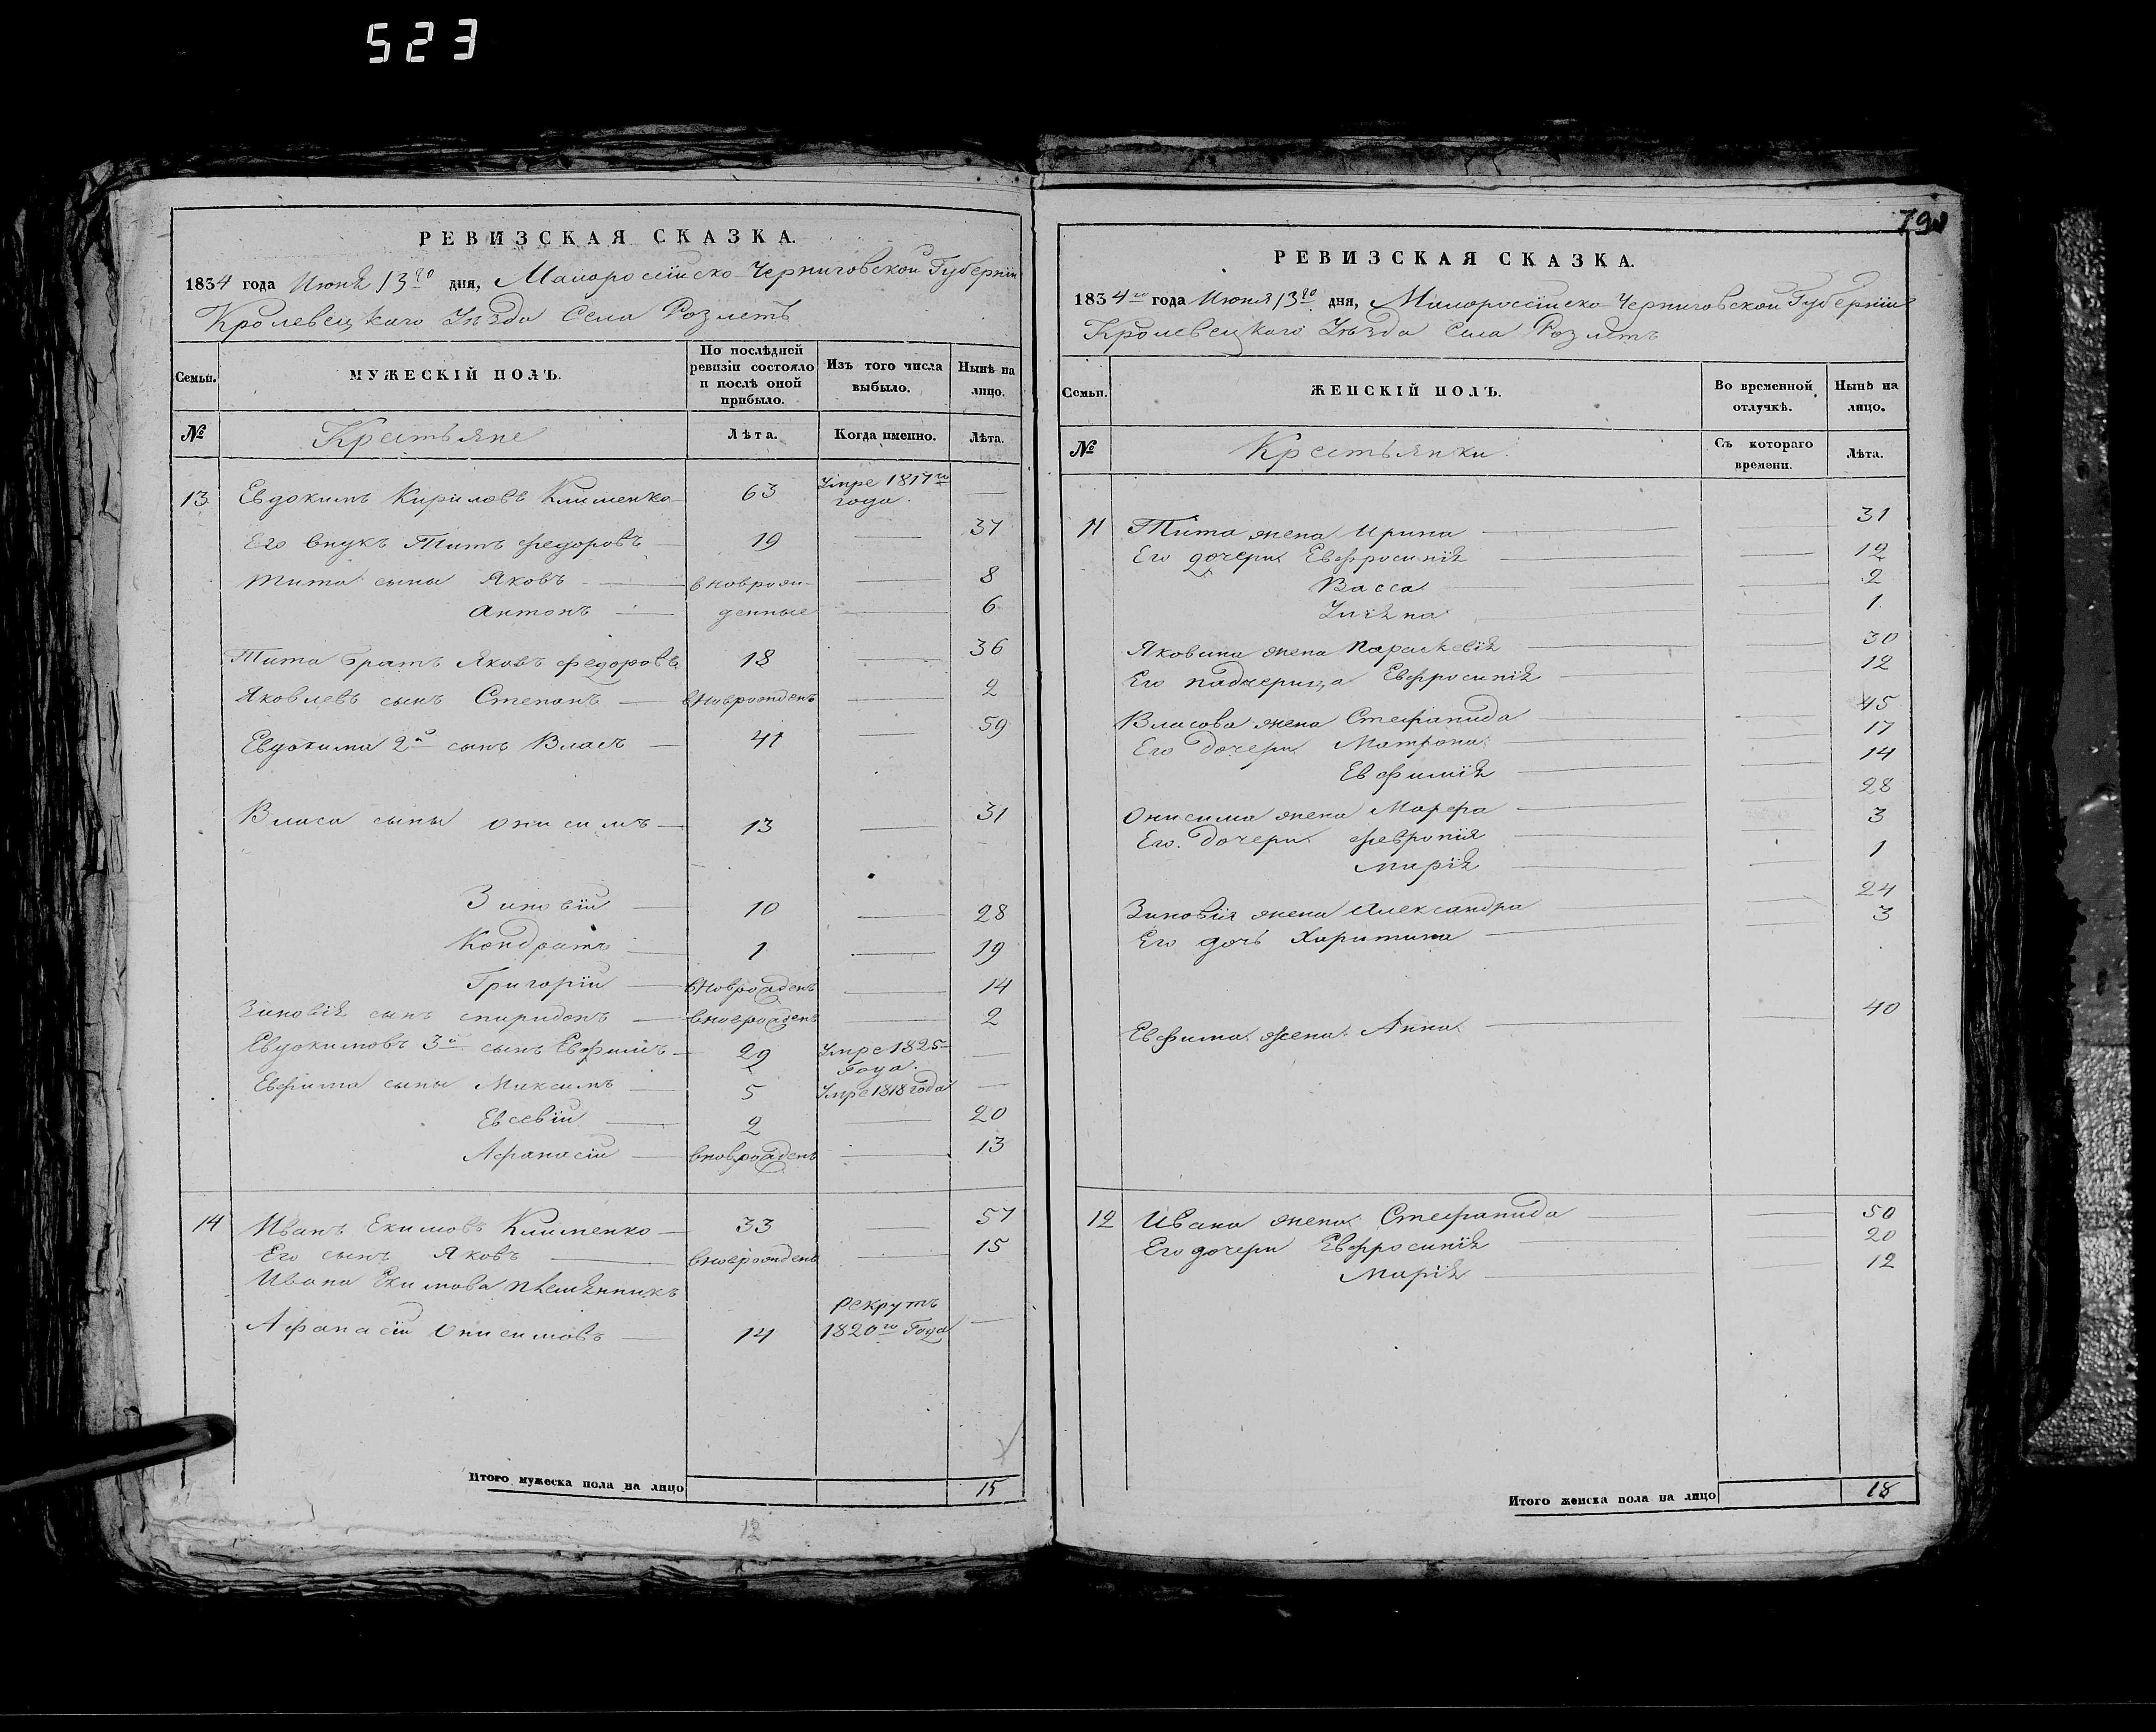 523
РЕВИЗСКАЯ СКАЗКА.
1834 года Июня 13го дня, Малороссійско-Черниговской Губерніи
Кролевецкаго Уѣзда Села Розлетъ
Семьи. МУЖЕСКІЙ ПОЛЪ. По послѣдней ревизіи состояло и послѣ оной прибыло. Изъ того числа выбыло. Нынѣ на лицо.
№ Крестьяне Лѣта. Когда именно. Лѣта.
13 Евдокимъ Кириловъ Клименко 63 Умре 1817го года.
Его внукъ Титъ Федоровъ 19 37
Тита сыны Яковъ вноврож- 8
Антонъ денные 6
Тита братъ Яковъ Федоровъ 18 36
Яковлевъ сынъ Степанъ вноврожденъ 2
Евдокима 2й сынъ Власъ 41 59
Власа сыны Онисимъ 13 31
Зиновій 10 28
Кондратъ 1 19
Григорій вноврожденъ 14
Зиновія сынъ Спиридонъ вноврожденъ 2
Евдокимовъ 3й сынъ Евфимъ 29 Умре 1825 года.
Евфима сыны Максимъ 5 Умре 1818 года
Евсевій 2 20
Афанасій вноврожденъ 13
14 Иванъ Екимовъ Клименко 33 51
Его сынъ Яковъ вноврожденъ 15
Ивана Екимова племянникъ
Афанасій Онисимовъ 14 рекрутъ 1820го Года
Итого мужеска пола на лицо 15
12
790
РЕВИЗСКАЯ СКАЗКА.
1834го года Июня 13го дня, Малороссійско-Черниговской Губерніи
Кролевецкаго Уѣзда Села Розлетъ
Семьи. ЖЕНСКІЙ ПОЛЪ. Во временной отлучкѣ. Нынѣ на лицо.
№ Крестьянки. Съ котораго времени. Лѣта.
11 Тита жена Ирина 31
Его дочери Евфросинія 12
Васса 2
Уліяна 1
Яковина жена Параскевія 30
Его падчерица Евфросинія 12
Власова жена Стефанида 45
Его дочери Матрона 17
Евфимія 14
Онисима жена Марфа 28
Его дочери Февронія 3
Марія 1
Зиновія жена Александра 24
Его дочь Харитина 3
Евфима жена Анна 40
12 Ивана жена Стефанида 50
Его дочери Евфросинія 20
Марія 12
Итого женска пола на лицо 18